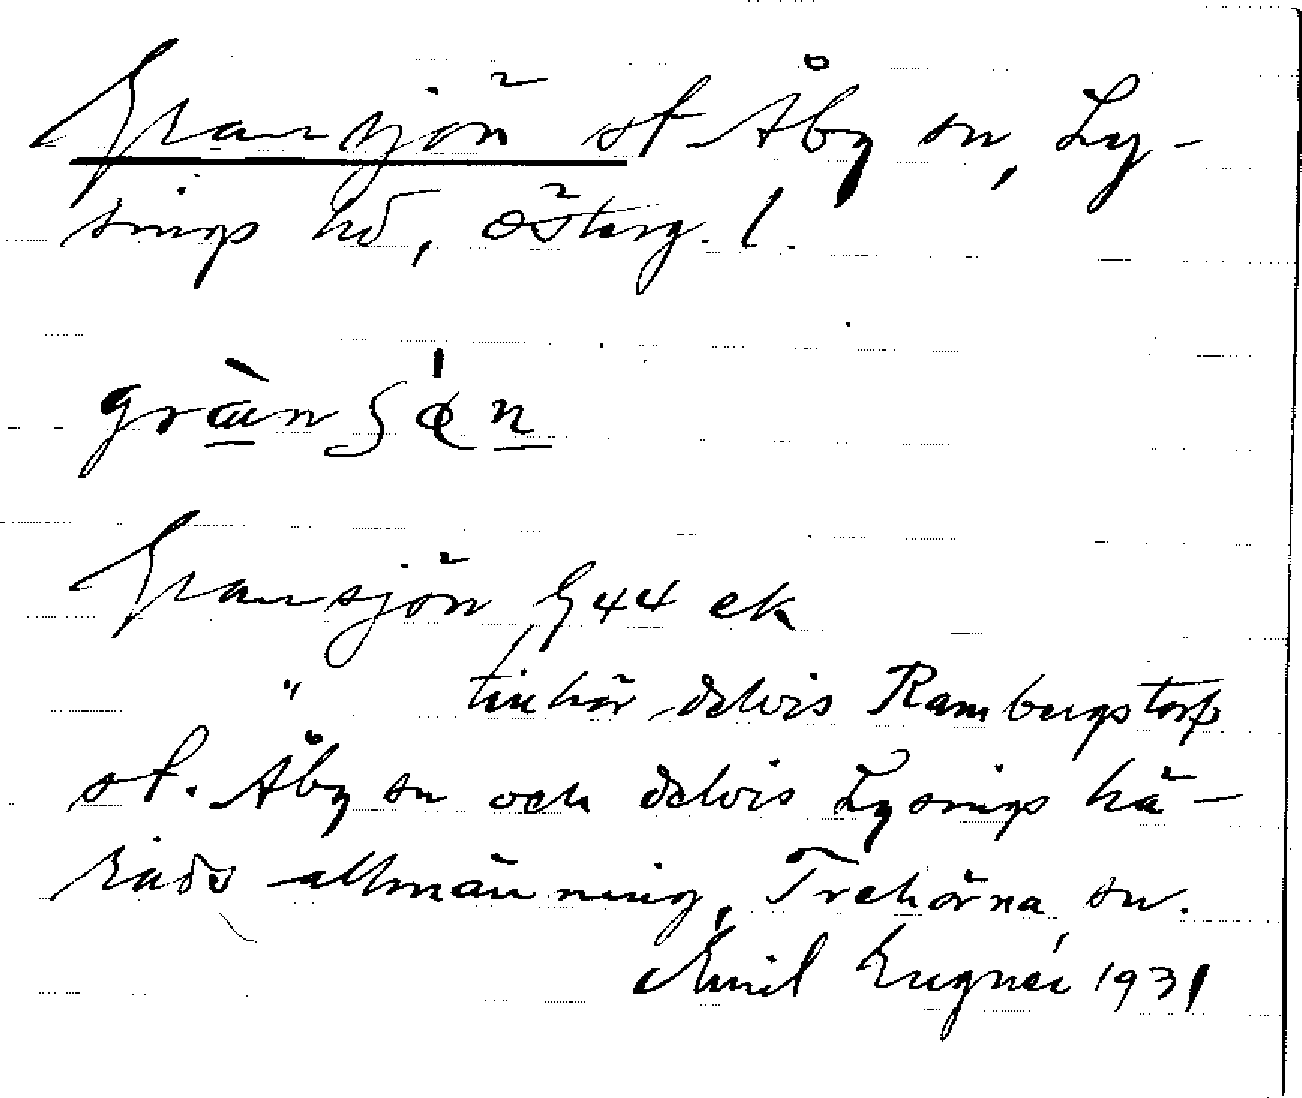 Gransjön st. Åby sn, Ly-
sings hd, Österg. l.
Gransjön G 44 ek
" tillhör delvis Rambergstorp
st. Åby sn och delvis Lysings hä-
rads allmänning, Trehörna sn.
Emil 1931